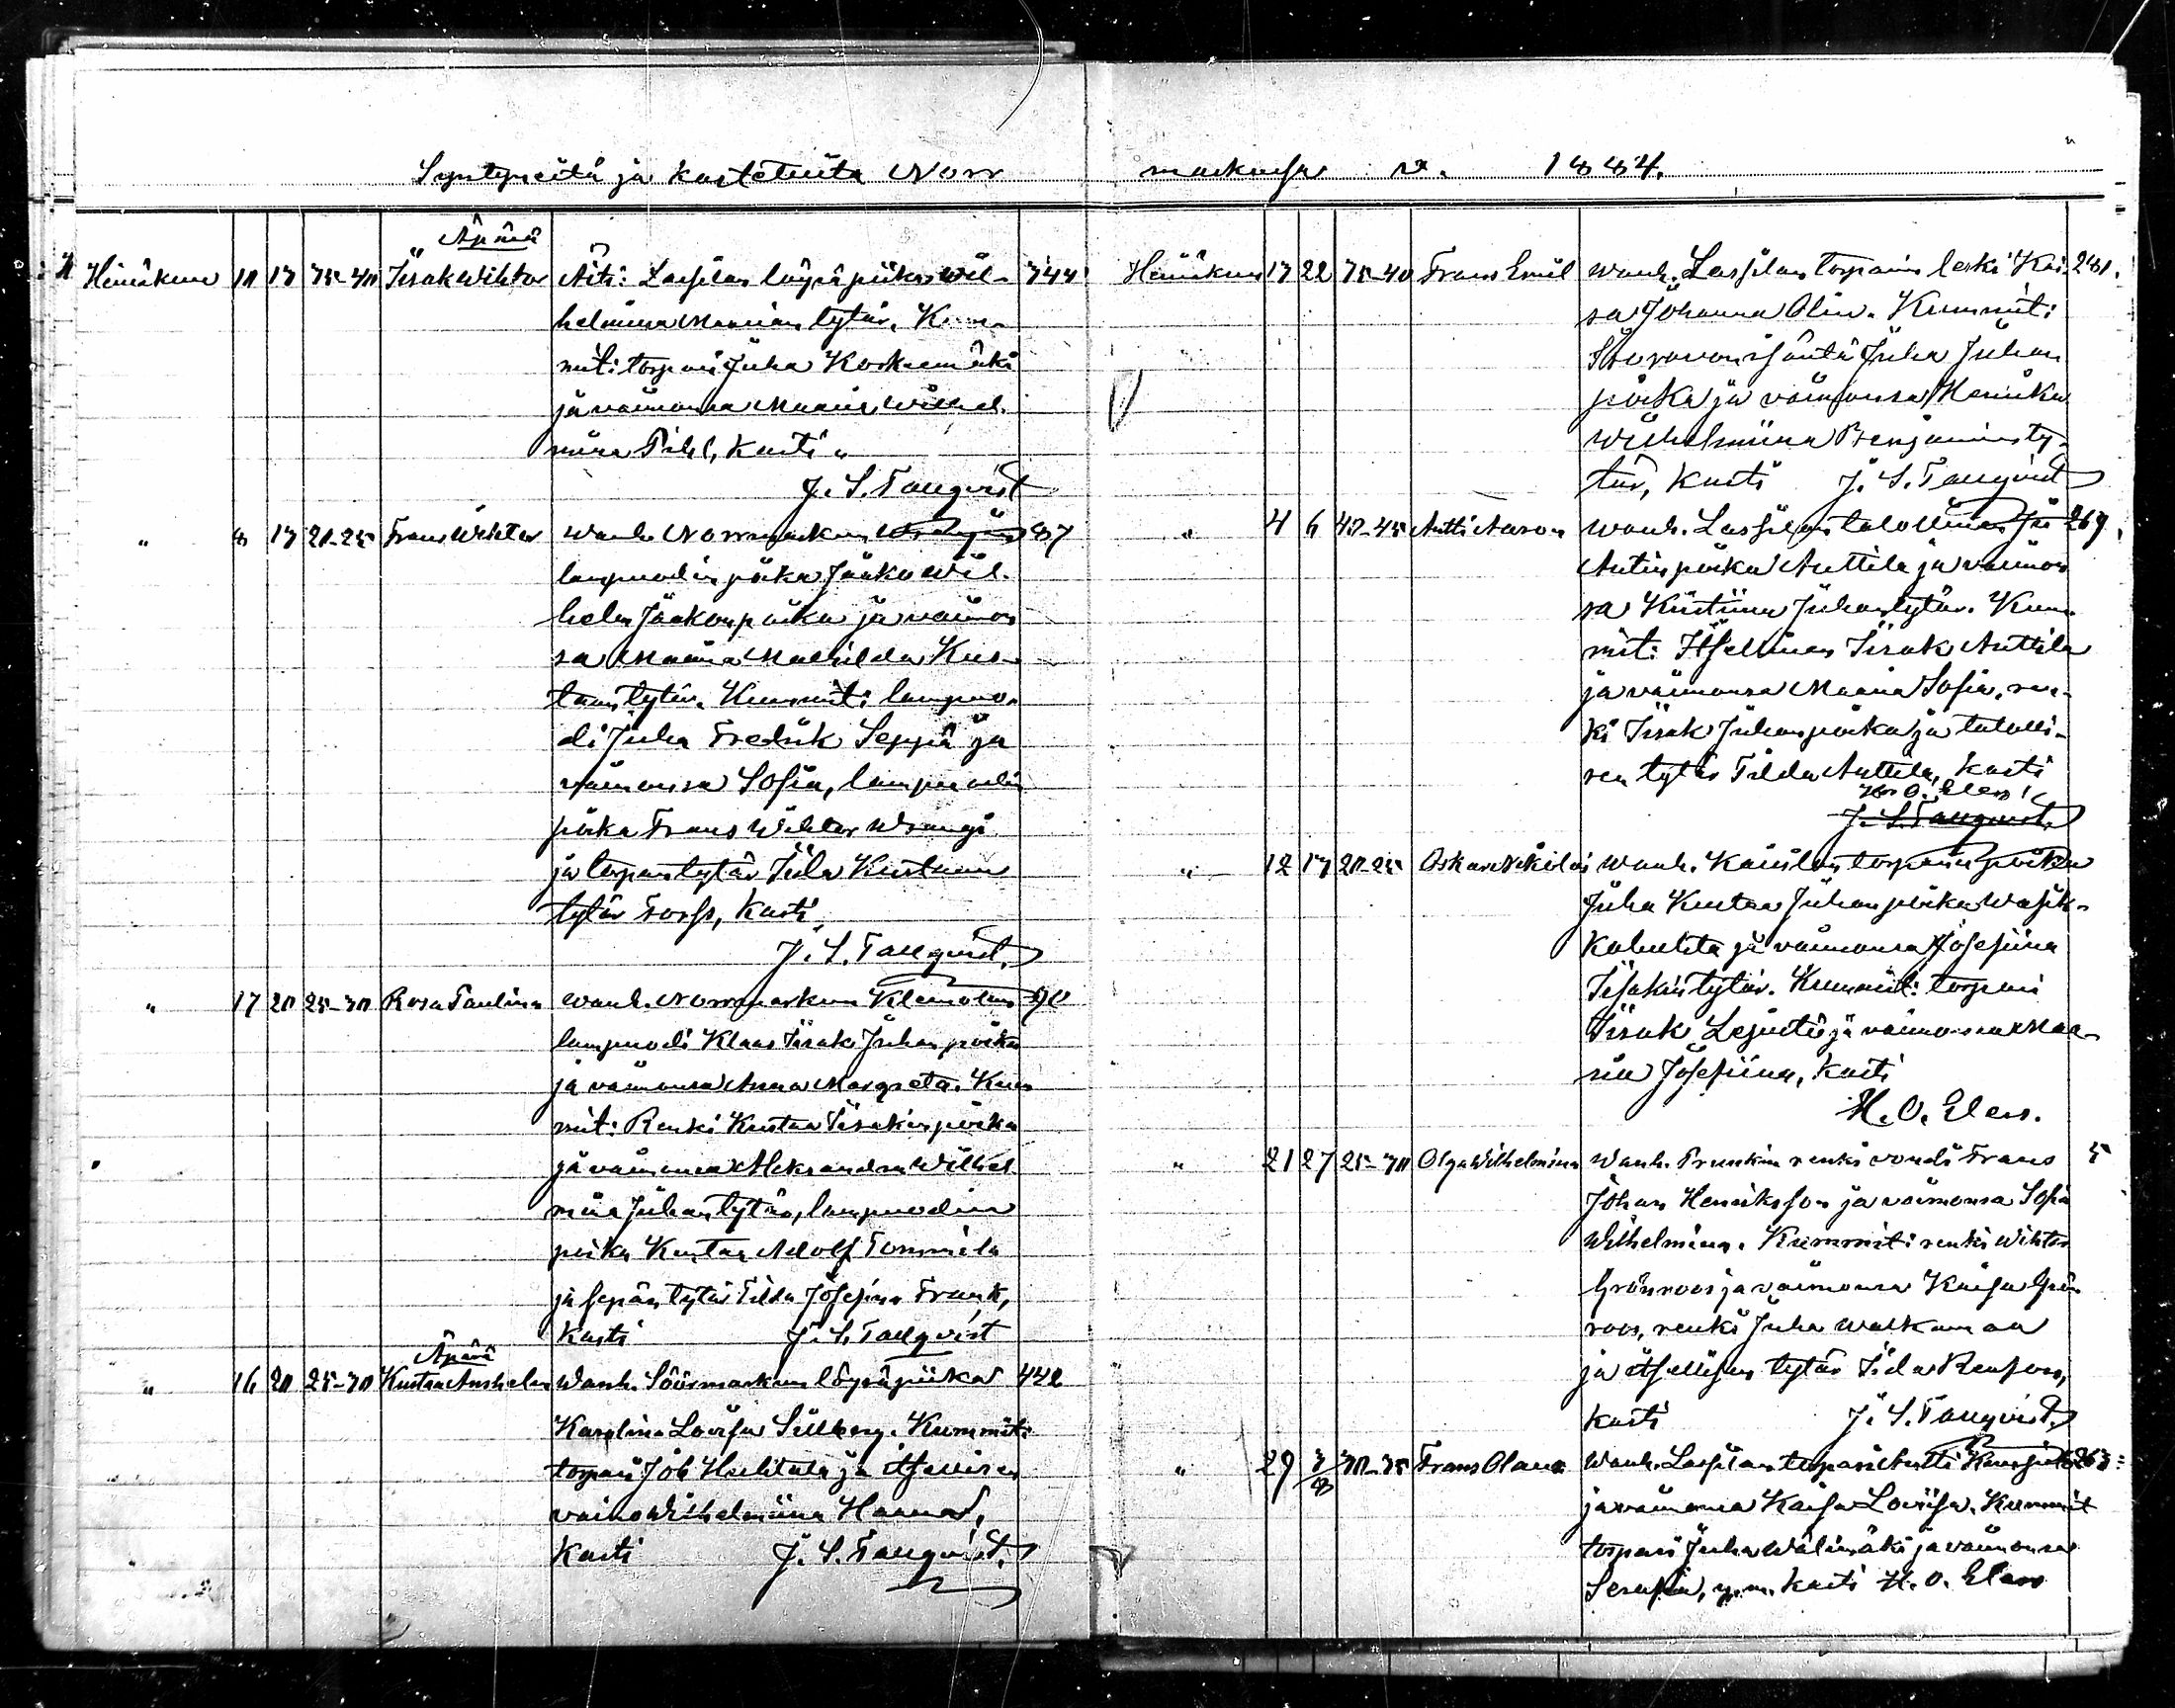 Syntyneitä ja kastetuita Norr
Äpärä
Heinäkuu 10 13 35-40 Iisak Wihtor Äiti: Lassilan löysä piika Wil- 344
helmiina Maarian tytär. Kum-
mit: torpari Juha Koskenmäki
ja vaimonsa Maaria Wilhel-
miina Pihl, Kasti
J. S. Tallqvist
" 8 13 20-25 Frans Wihtor Wanh. Norrmarkun 87
lampuodin poika Jaako Wil-
helm Jaakonpoika ja vaimon
sa Maria Mathilda Kus-
taantytär. Kummit: lampuo-
di Juha Fredrik Seppä ja
vaimonsa Sofia, lampuodin
poika Frans Wihtor
ja torparintytär Iida Kustaan
tytär Forss, Kasti
J. S. Tallqvist.
" 17 20 25-30 Rosa Paulina Wanh. Norrmarkun Klemolan 90
lampuodi Klaas Iisak Juhanpoika
ja vaimonsa Anna Margreta. Kum
mit: Renki Kustaa Iisakinpoika
ja vaimonsa Aleksandra Wilhel
miina Juhantytär, lampuodin
poika Kustaa Adolf Tommila
ja sepäntytär Tilda Josefina Frank,
Kasti J. S. Tallqvist
Äpärä
" 16 20 25-30 Kustaa Anshelm Wanh. Söörmarkun löysä piika 442
Karolina Lovisa Sillberg. Kummit:
torpari Job ja itsellisen
vaimo Wilhelmiina
Kasti J. S. Tallqvist.
markussa v. 1884.
Heinäkuu 17 22 35-40 Frans Emil Wanh. Lassilan torparin leski Kai- 281.
sa Johanna Olin. Kummit:
isäntä Juha Juhan
poika ja vaimonsa Henrika
Wilhelmiina Benjaminty-
tär, Kasti J. S. Tallqvist
" 4 6 40-45 Antti Aaron Wanh. Lassilan talollinen 269.
Antinpoika Anttila ja vaimon
sa Kristiina Juhantytär. Kum-
mit: Itsellinen Iisak Anttila
ja vaimonsa Maaria Sofia, ren-
ki Iisak Juhanpoika ja talolli-
sen tytär Tilda Anttila, Kasti
H. O. Elers
J. S. Tallqvist.
" 12 13 20-25 Oskar Nikolai Wanh. torparin poika
Juha Kustaa Juhanpoika
ja vaimonsa Josefiina
Iisakintytär. Kummit: torpari
Iisak ja vaimonsa Maa-
ria Josefiina, Kasti
H. O. Elers.
" 21 27 25-30 Olga Wilhelmina Wanh. renki vouti Frans 5
Johan Henriksson ja vaimonsa Sofia
Wilhelmina. Kummit: renki Wihtor
Grönroos ja vaimonsa Kaisa Grön
roos, renki Juha
ja itsellisen tytär Iida
Kasti J. S. Tallqvist.
" 29 3/8 30-35 Frans Olaus Wanh. Lassilan torpari Antti 263:
ja vaimonsa Kaisa Lovisa. Kummit
torpari Juha Wälimäki ja vaimonsa
Serafia, y. m. Kasti H. O. Elers